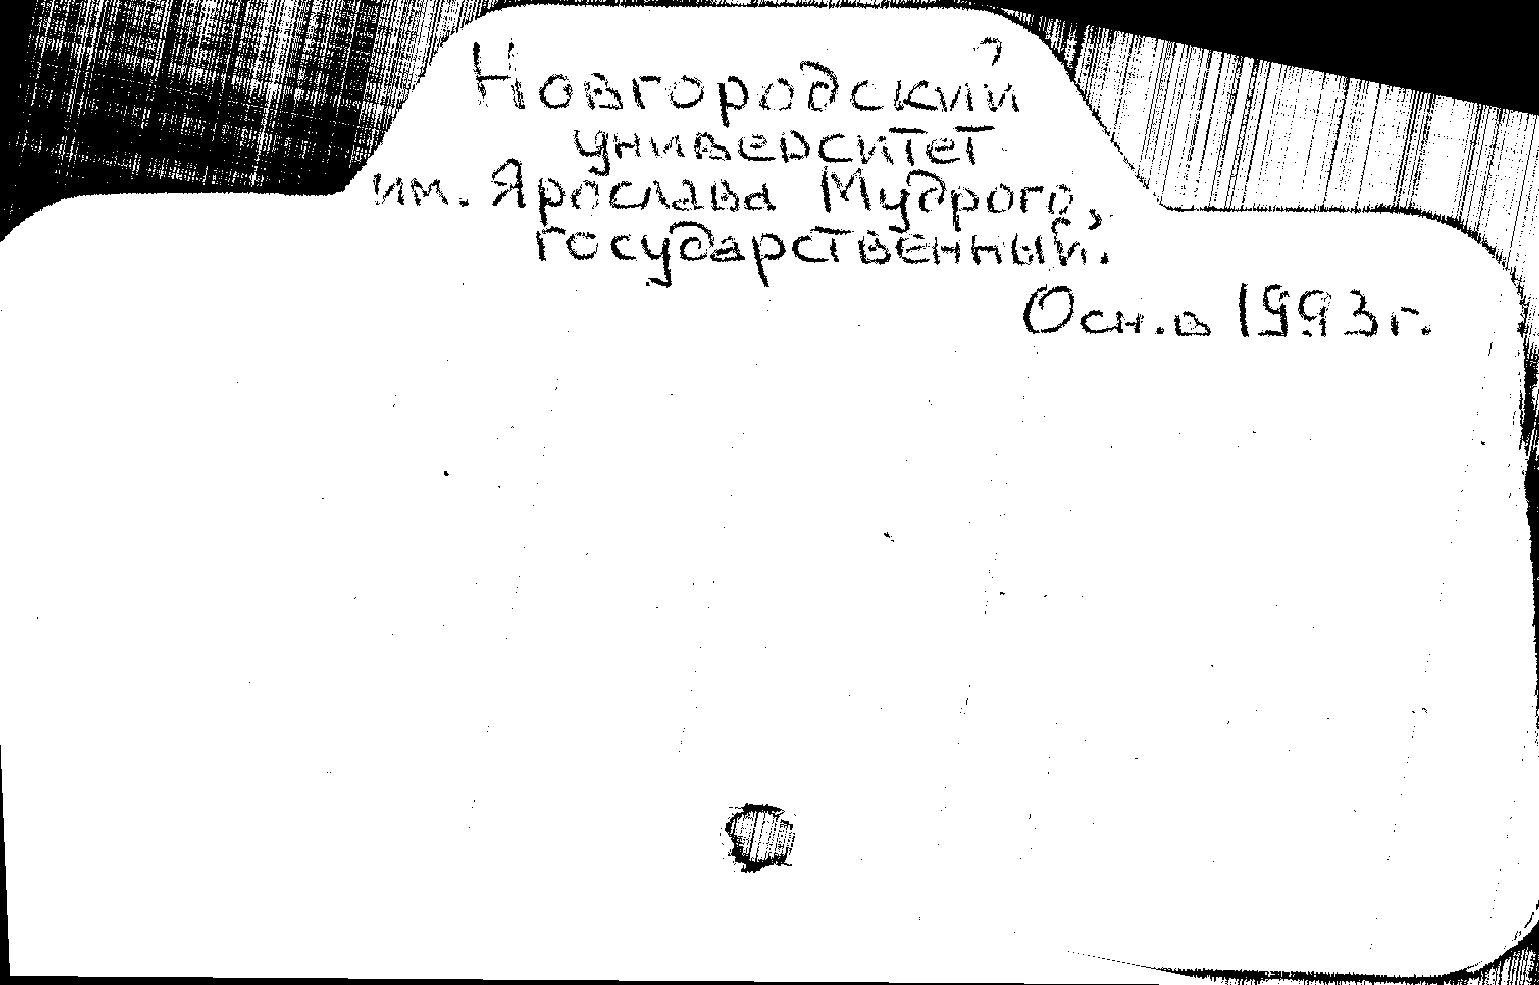 Новгородский
университет
им. Ярослава Мудрого,
государственный.
Осн. в 1993 г.